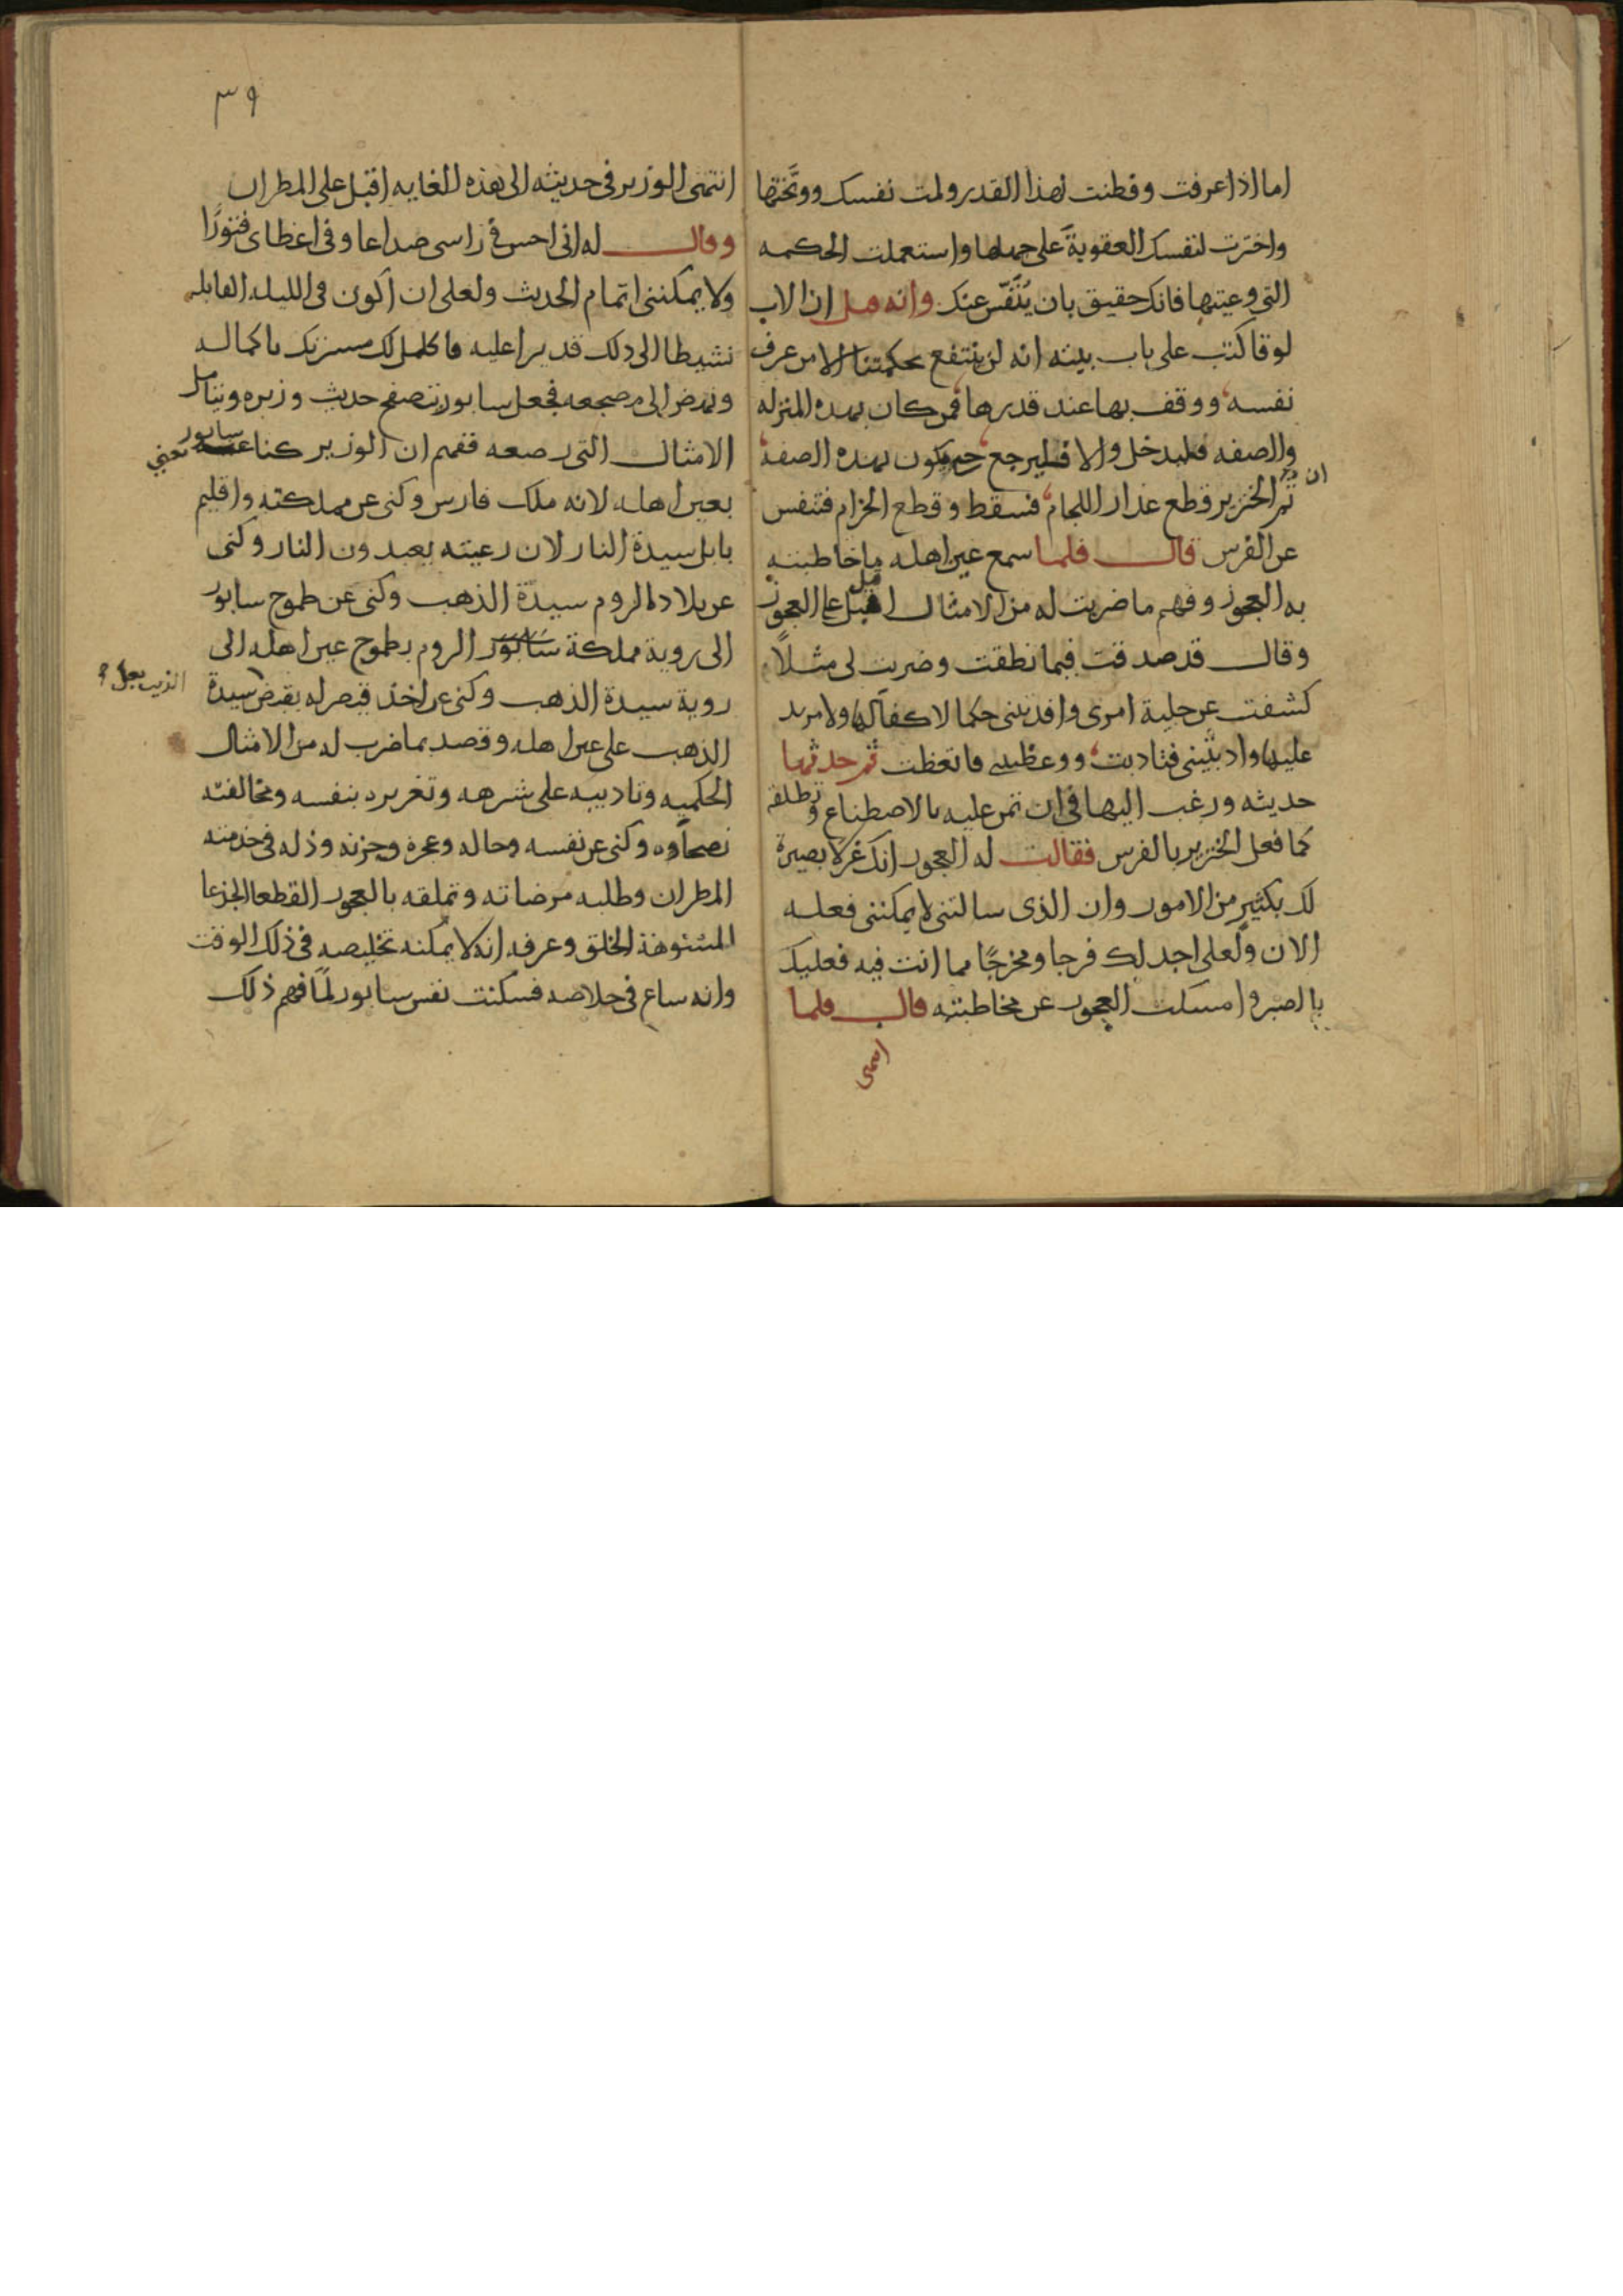 اما اذا عرفت وفطنت لهذا القدر ولمت نفسك ووبختها
واخترت لنفسك العقوبة على جهلها واستعملت الحكمه
التي وعيتها فانك حقيق بان يُنَفَّس عنك وانه قيل ان الاب
لوقا كتب على باب بيته انه لن ينتفع بحكمتنا الا من عرف
نفسه ووقف بها عند قدرها فمن كان بهده المنزله
والصفه فليدخل والا فليرجع حتى يكون بهده الصفة
ثم ان الخنزير قطع عذار اللجام فسقط وقطع الحزام فتنفس
عن الفرس قال فلما سمع عين اهله ما خاطبته
به العجوز وفهم ما ضربت له من الامثال اقبل على العجوز
وقال قد صدقت فيما نطقت وضربت لي مثلاً
كشفت عن جلية امرى وافدتني حكما لا كفا لها ولا مزيد
عليها وادبتيني فتادبت ووعظتيني فاتعظت ثم حدثها
حديثه ورغب اليها في ان تمن عليه بالاصطناع وتطلقه
كما فعل الخنزير بالفرس فقالت له العجوز انك غر لا بصيرة
لك بكثير من الامور وان الذى سالتني لا يمكنني فعله
الان ولعلي اجد لك فرجا ومخرجًا مما انت فيه فعليك
بالصبر وامسكت العجوز عن مخاطبته قال فلما
انتهى
٣٩
انتهى الوزير في حديثه الى هذه الغايه اقبل على المطران
وقال له اني احس في راسي صداعا وفي اعضاى فتورًا
ولا يمكنني اتمام الحديث ولعلي ان اكون في الليله القابله
نشيطا الى دلك قديرا عليه فاكمل لك مسرتك باكماله
ونهض الى مضجعه فجعل سابور يتصفح حديث وزيره ويتامل
الامثال التي رصعه ففهم ان الوزير كنا عن سابور يعني
بعين اهله لانه ملك فارس وكنى عن مملكته واقليم
بابل سيدة النار لان رعيته يعبدون النار وكنى
عن بلاد الروم سيدة الذهب وكنى عن طموح سابور
الى روية مملكة سابور الروم بطموح عين اهله الى
روية سيدة الذهب وكنى عن اخذ قيصر له بقبض سيدة
الذيب بعل
الذهب على عين اهله وقصد بما ضرب له من الامثال
الحكميه وتاديبه على شرهه وتغريره بنفسه ومخالفته
نصحاوه وكنى عن نفسه وحاله وعجزه وحزنه وذله في خدمته
المطران وطلبه مرضاته وتملقه بالعجوز القطعا الجذعا
المشوهة الخلق وعرفه انه لا يمكنه تخليصه في ذلك الوقت
وانه ساع في خلاصه فسكنت نفس سابور لمّا فهم ذلك